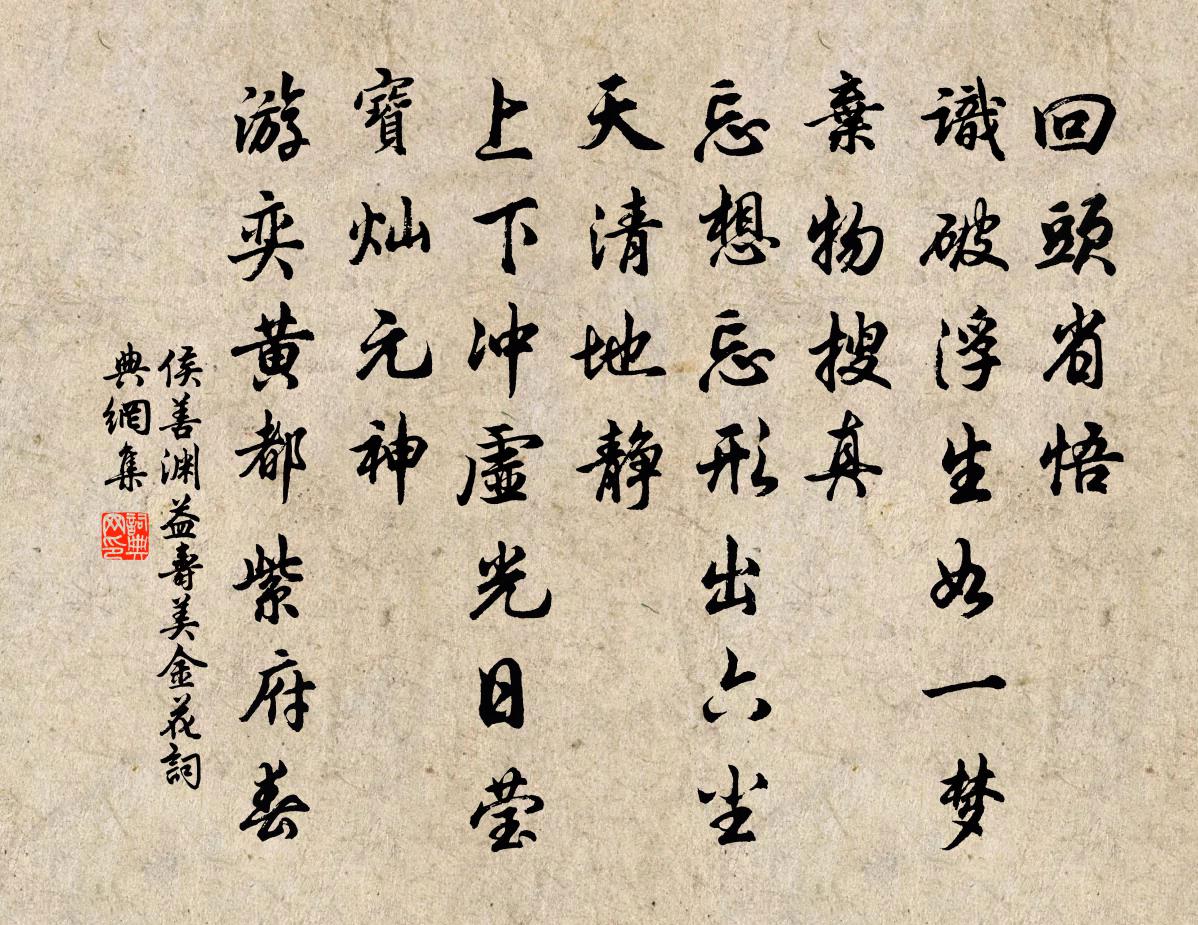 回頭省悟
識破浮生如一梦
棄物搜真
忘想忘形出六尘
天清地静
上下冲虚光日莹
寶灿元神
游奕黄都紫府春
侯善渊益壽美金花詞
典網集
詞典网印